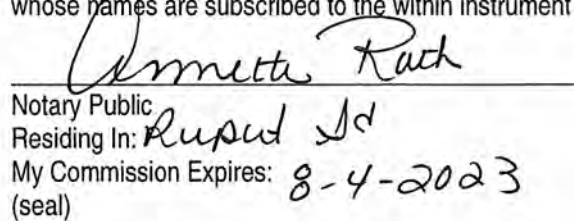 whose names are subscribed to the within instrument
Annette Rath
Notary Public
Residing In: Rupert Id
My Commission Expires: 8-4-2023
(seal)